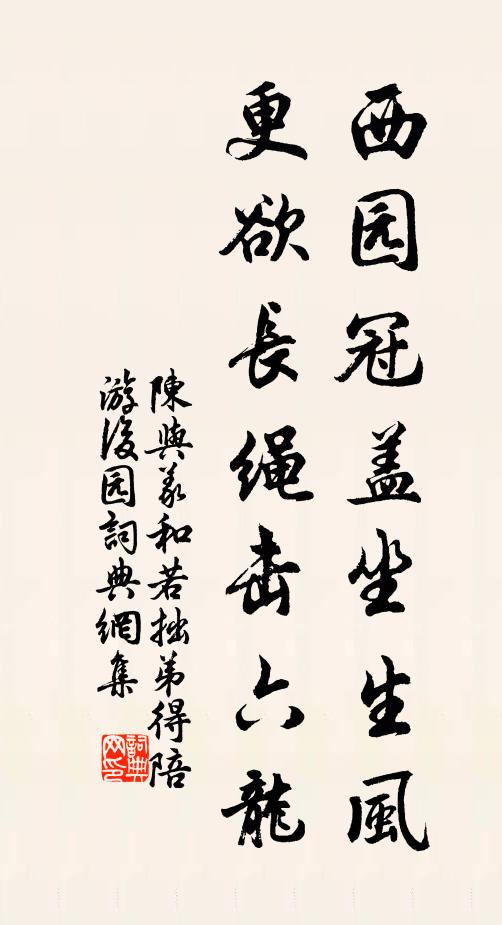 西园冠盖坐生風
更欲長绳击六龍
陳與義和若拙弟得陪
游後园詞典網集
詞典网印